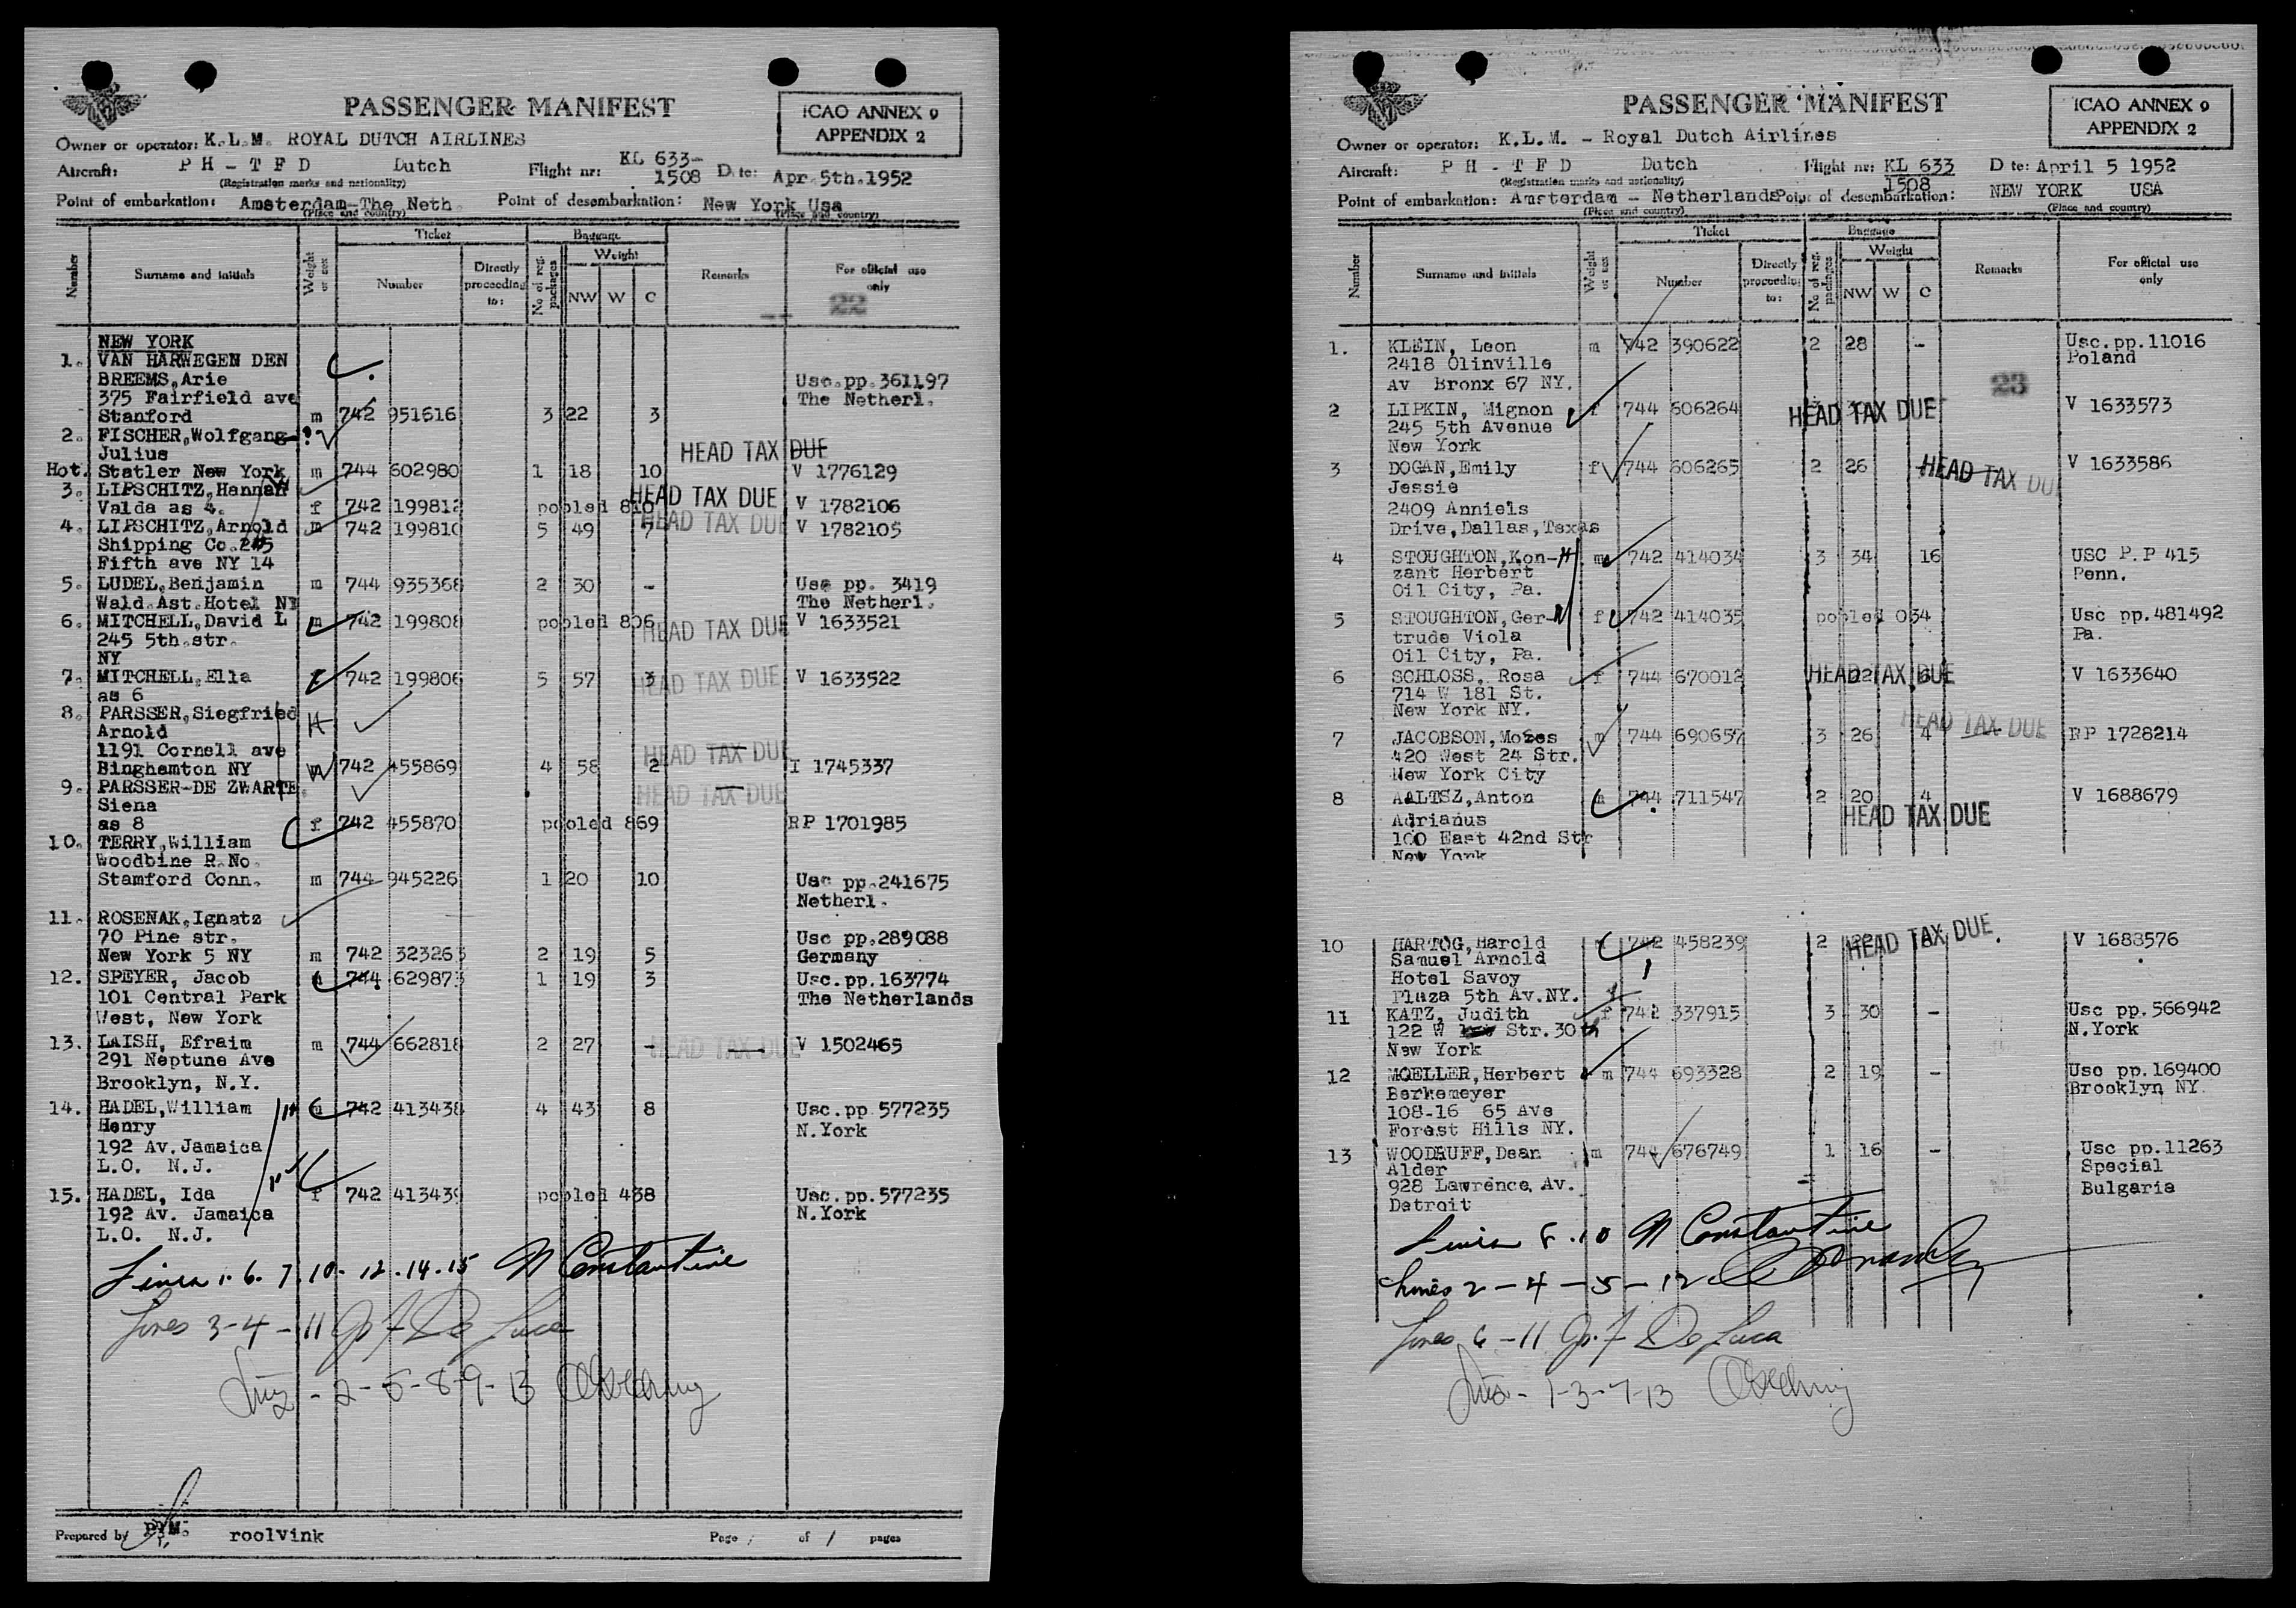 PASSENGER MANIFEST
ICAO ANNEX 9
APPENDIX 2
Owner or operator: K.L.M. ROYAL DUTCH AIRLINES
Aircraft: PH - T F D Dutch Flight nr: KL 633-1508 Date: Apr.5th.1952
(Registration marks and nationality)
Point of embarkation: Amsterdam-The Neth. Point of desembarkation: New York Usa
(Place and country) (Place and country)
Number Surname and initials Weight or sex Ticket Number Directly proceeding to: Baggage No of reg. packages Weight NW W C Remarks For official use only
22
NEW YORK
1. VAN HARWEGEN DEN
BREEMS, Arie Usc.pp.361197
375 Fairfield ave The Netherl.
Stanford m 742 951616 3 22 3
2. FISCHER, Wolfgang
Julius HEAD TAX DUE
Hot. Statler New York m 744 602980 1 18 10 V 1776129
3. LIPSCHITZ, Hannah HEAD TAX DUE
Valda as 4. f 742 199812 pooled 810 V 1782106
4. LIPSCHITZ, Arnold m 742 199810 5 49 7 HEAD TAX DUE V 1782105
Shipping Co.245
Fifth ave NY 14
5. LUDEL, Benjamin m 744 935368 2 30 - Usc pp. 3419
Wald.Ast.Hotel NY The Netherl.
6. MITCHELL, David L m 742 199808 pooled 806 HEAD TAX DUE V 1633521
245 5th.str.
NY
7. MITCHELL, Ella f 742 199806 5 57 3 HEAD TAX DUE V 1633522
as 6
8. PARSSER, Siegfried
Arnold
1191 Cornell ave HEAD TAX DUE
Binghamton NY m 742 455869 4 58 2 I 1745337
9. PARSSER-DE ZWARTE, HEAD TAX DUE
Siena
as 8 f 742 455870 pooled 869 RP 1701985
10. TERRY, William
Woodbine R.No.
Stamford Conn. m 744 945226 1 20 10 Usc pp.241675
Netherl.
11. ROSENAK, Ignatz
70 Pine str. Usc pp.289088
New York 5 NY m 742 323263 2 19 5 Germany
12. SPEYER, Jacob m 744 629873 1 19 3 Usc.pp.163774
101 Central Park The Netherlands
West, New York
13. LAISH, Efraim m 744 662818 2 27 - HEAD TAX DUE V 1502465
291 Neptune Ave
Brooklyn, N.Y.
14. HADEL, William m 742 413438 4 43 8 Usc.pp 577235
Henry N.York
192 Av.Jamaica
L.O. N.J.
15. HADEL, Ida f 742 413439 pooled 438 Usc.pp.577235
192 Av. Jamaica N.York
L.O. N.J.
Lines 1. 6. 7. 10. 12. 14. 15 N Constantine
Lines 3-4-11 Jo. F De Luca
- 2-5-8-9-13
Prepared by roolvink Page of 1 pages
PASSENGER MANIFEST
ICAO ANNEX 9
APPENDIX 2
Owner or operator: K.L.M. - Royal Dutch Airlines
Aircraft: PH - T F D Dutch Flight nr: KL 633 1508 Date: April 5 1952
(Registration marks and nationality)
Point of embarkation: Amsterdam - Netherlands Point of desembarkation: NEW YORK USA
(Place and country) (Place and country)
Number Surname and initials Weight or sex Ticket Number Directly proceeding to: Baggage No of reg. packages Weight NW W C Remarks For official use only
1. KLEIN, Leon m 742 390622 2 28 - Usc.pp.11016
2418 Olinville Poland
Av Bronx 67 NY. 23
2 LIPKIN, Mignon f 744 606264 HEAD TAX DUE V 1633573
245 5th Avenue
New York
3 DOGAN, Emily f 744 606265 2 26 HEAD TAX DUE V 1633586
Jessie
2409 Anniels
Drive, Dallas, Texas
4 STOUGHTON, Kon- m 742 414034 3 34 16 USC P.P 415
zant Herbert Penn.
Oil City, Pa.
5 STOUGHTON, Ger- f 742 414035 pooled 034 Usc pp.481492
trude Viola Pa.
Oil City, Pa.
6 SCHLOSS, Rosa f 744 670012 HEAD TAX DUE V 1633640
714 W 181 St.
New York NY. HEAD TAX DUE
7 JACOBSON, Mozes m 744 690657 3 26 4 RP 1728214
420 West 24 Str.
New York City
8 AALTSZ, Anton m 744 711547 2 20 4 V 1688679
Adrianus HEAD TAX DUE
100 East 42nd Str
New York
10 HARTOG, Harold m 742 458239 2 HEAD TAX DUE V 1688576
Samuel Arnold
Hotel Savoy
Plaza 5th Av.NY.
11 KATZ, Judith f 742 337915 3 30 - Usc pp.566942
122 W Str.30th N.York
New York
12 MOELLER, Herbert m 744 693328 2 19 - Usc pp.169400
Berkemeyer Brooklyn NY.
108-16 65 Ave
Forest Hills NY.
13 WOODRUFF, Dean m 744 676749 1 16 - Usc pp.11263
Alder Special
928 Lawrence Av. Bulgaria
Detroit
Lines 8.10 N Constantine
Lines 2-4-5-12
Lines 6-11 Jo. F De Luca
- 1-3-7-13